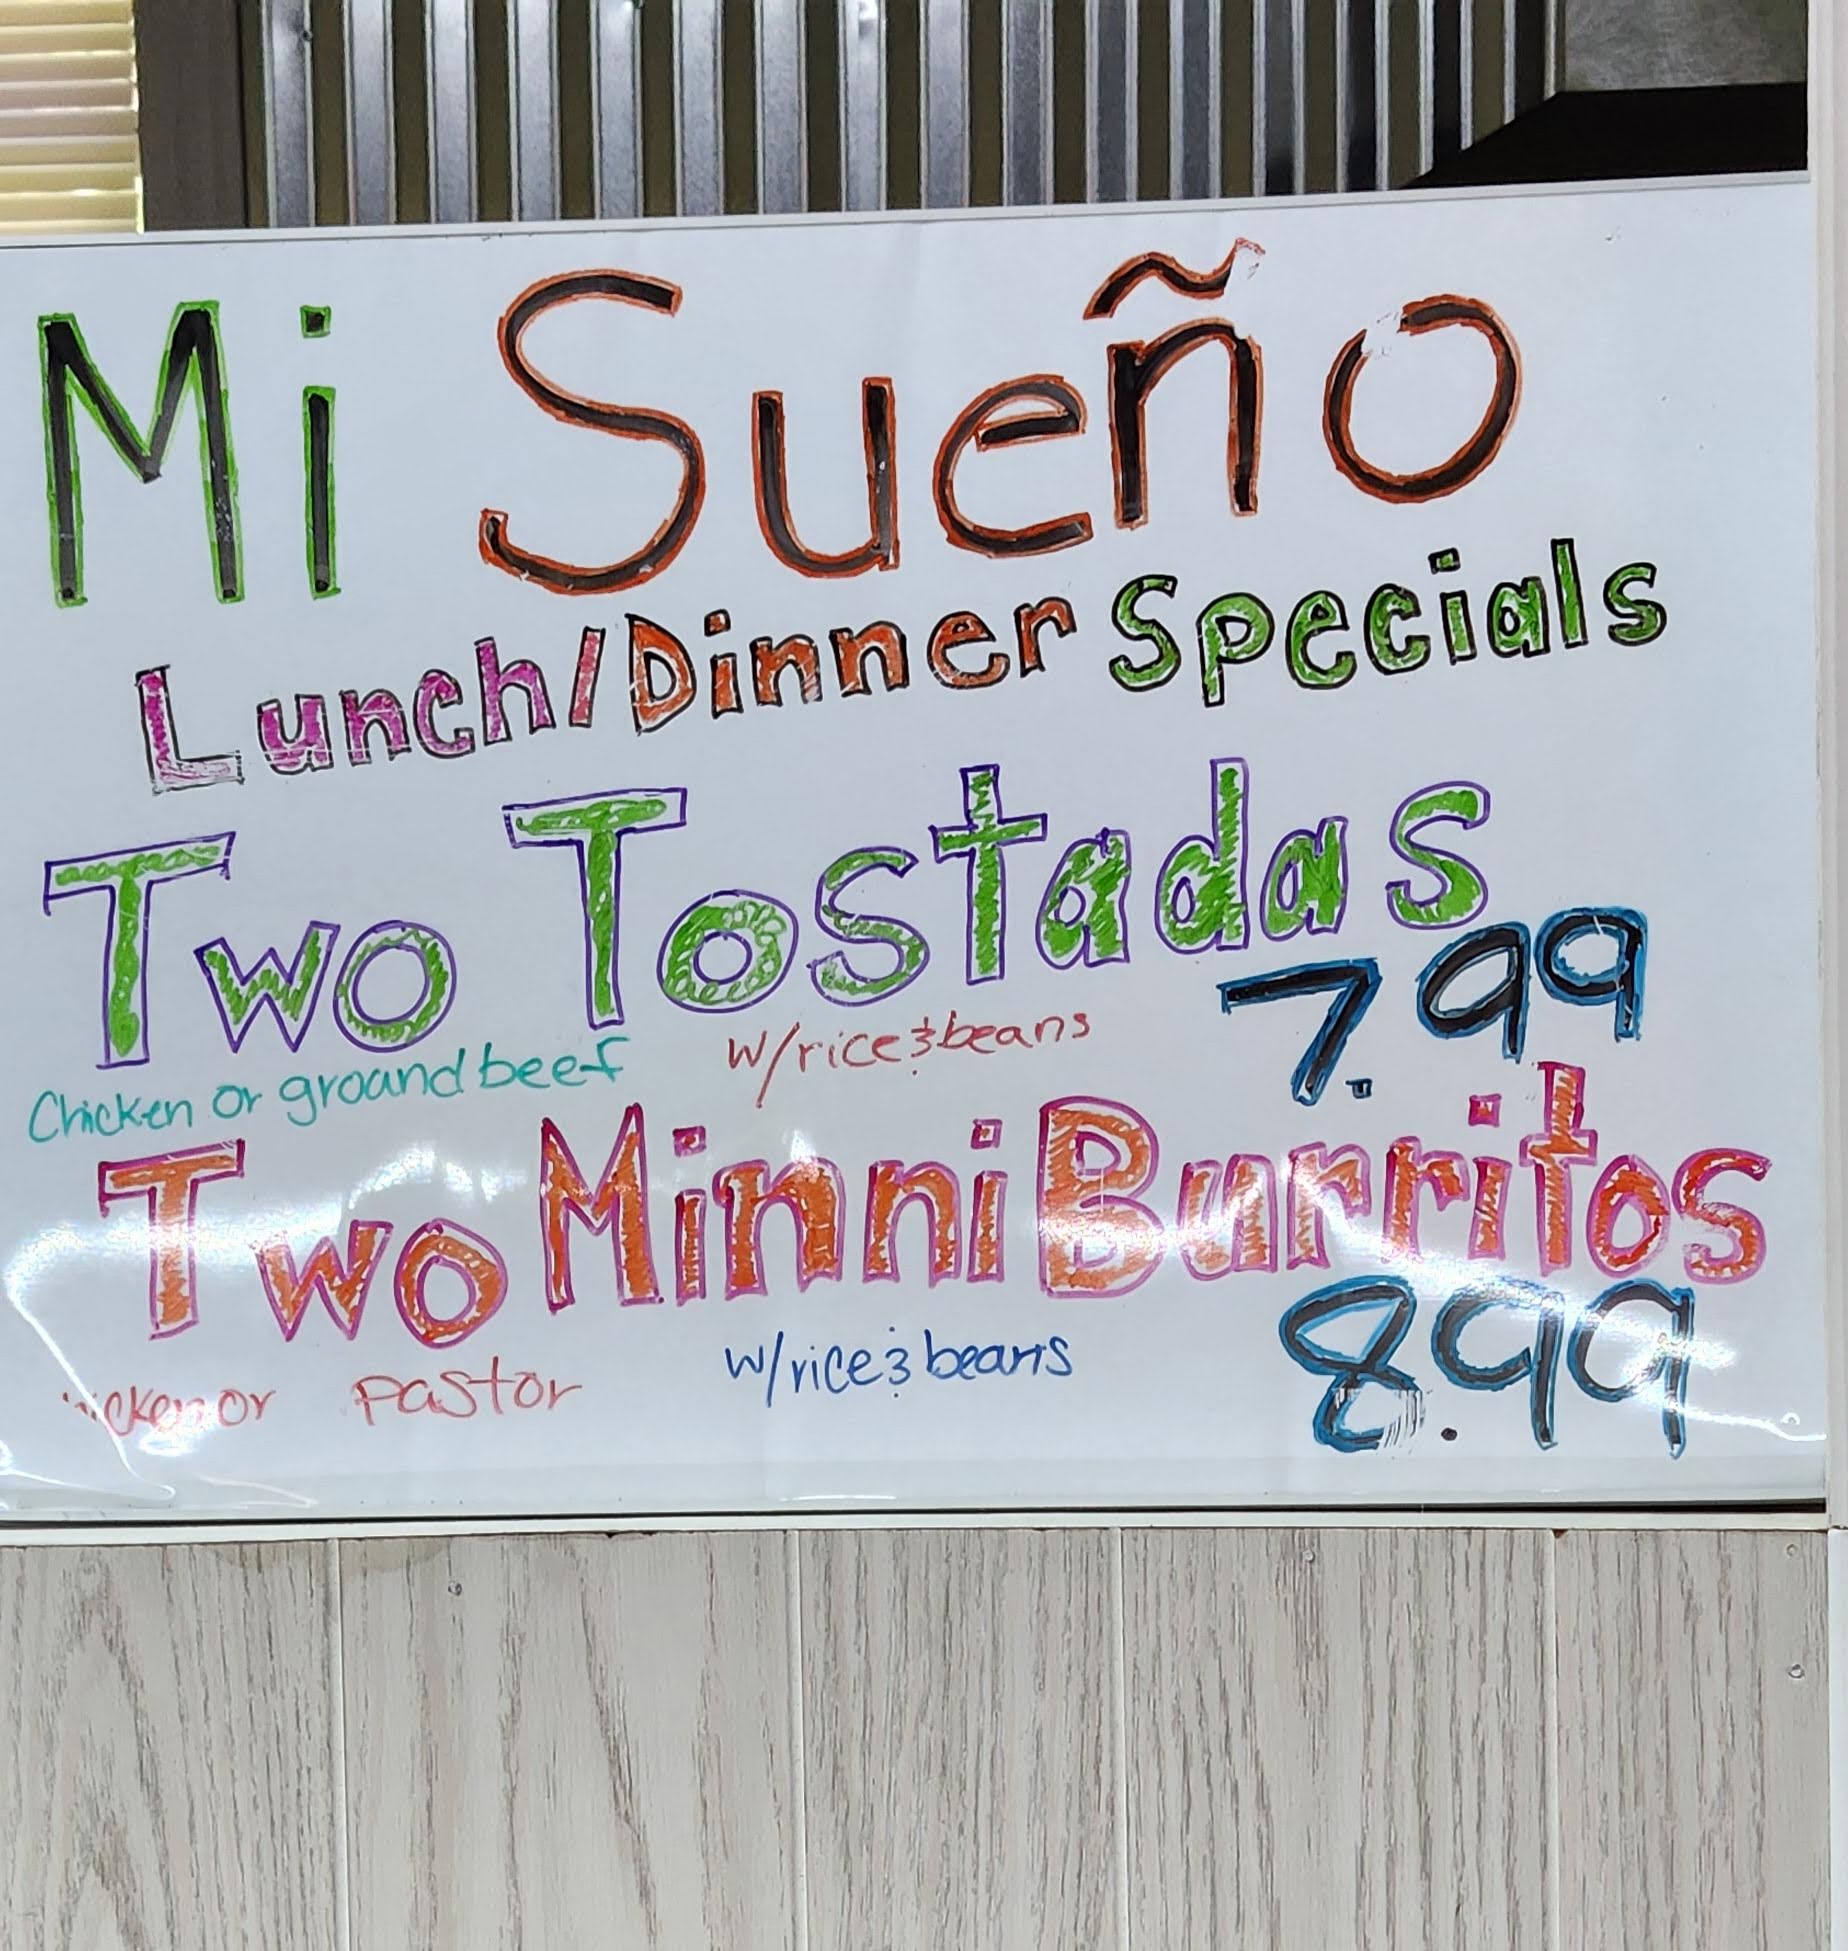 Mi Sueño
Lunch/Dinner Specials
Two Tostadas
7.99
Chicken or ground beef w/rice & beans
Two Minni Burritos
8.99
or pastor w/rice & beans